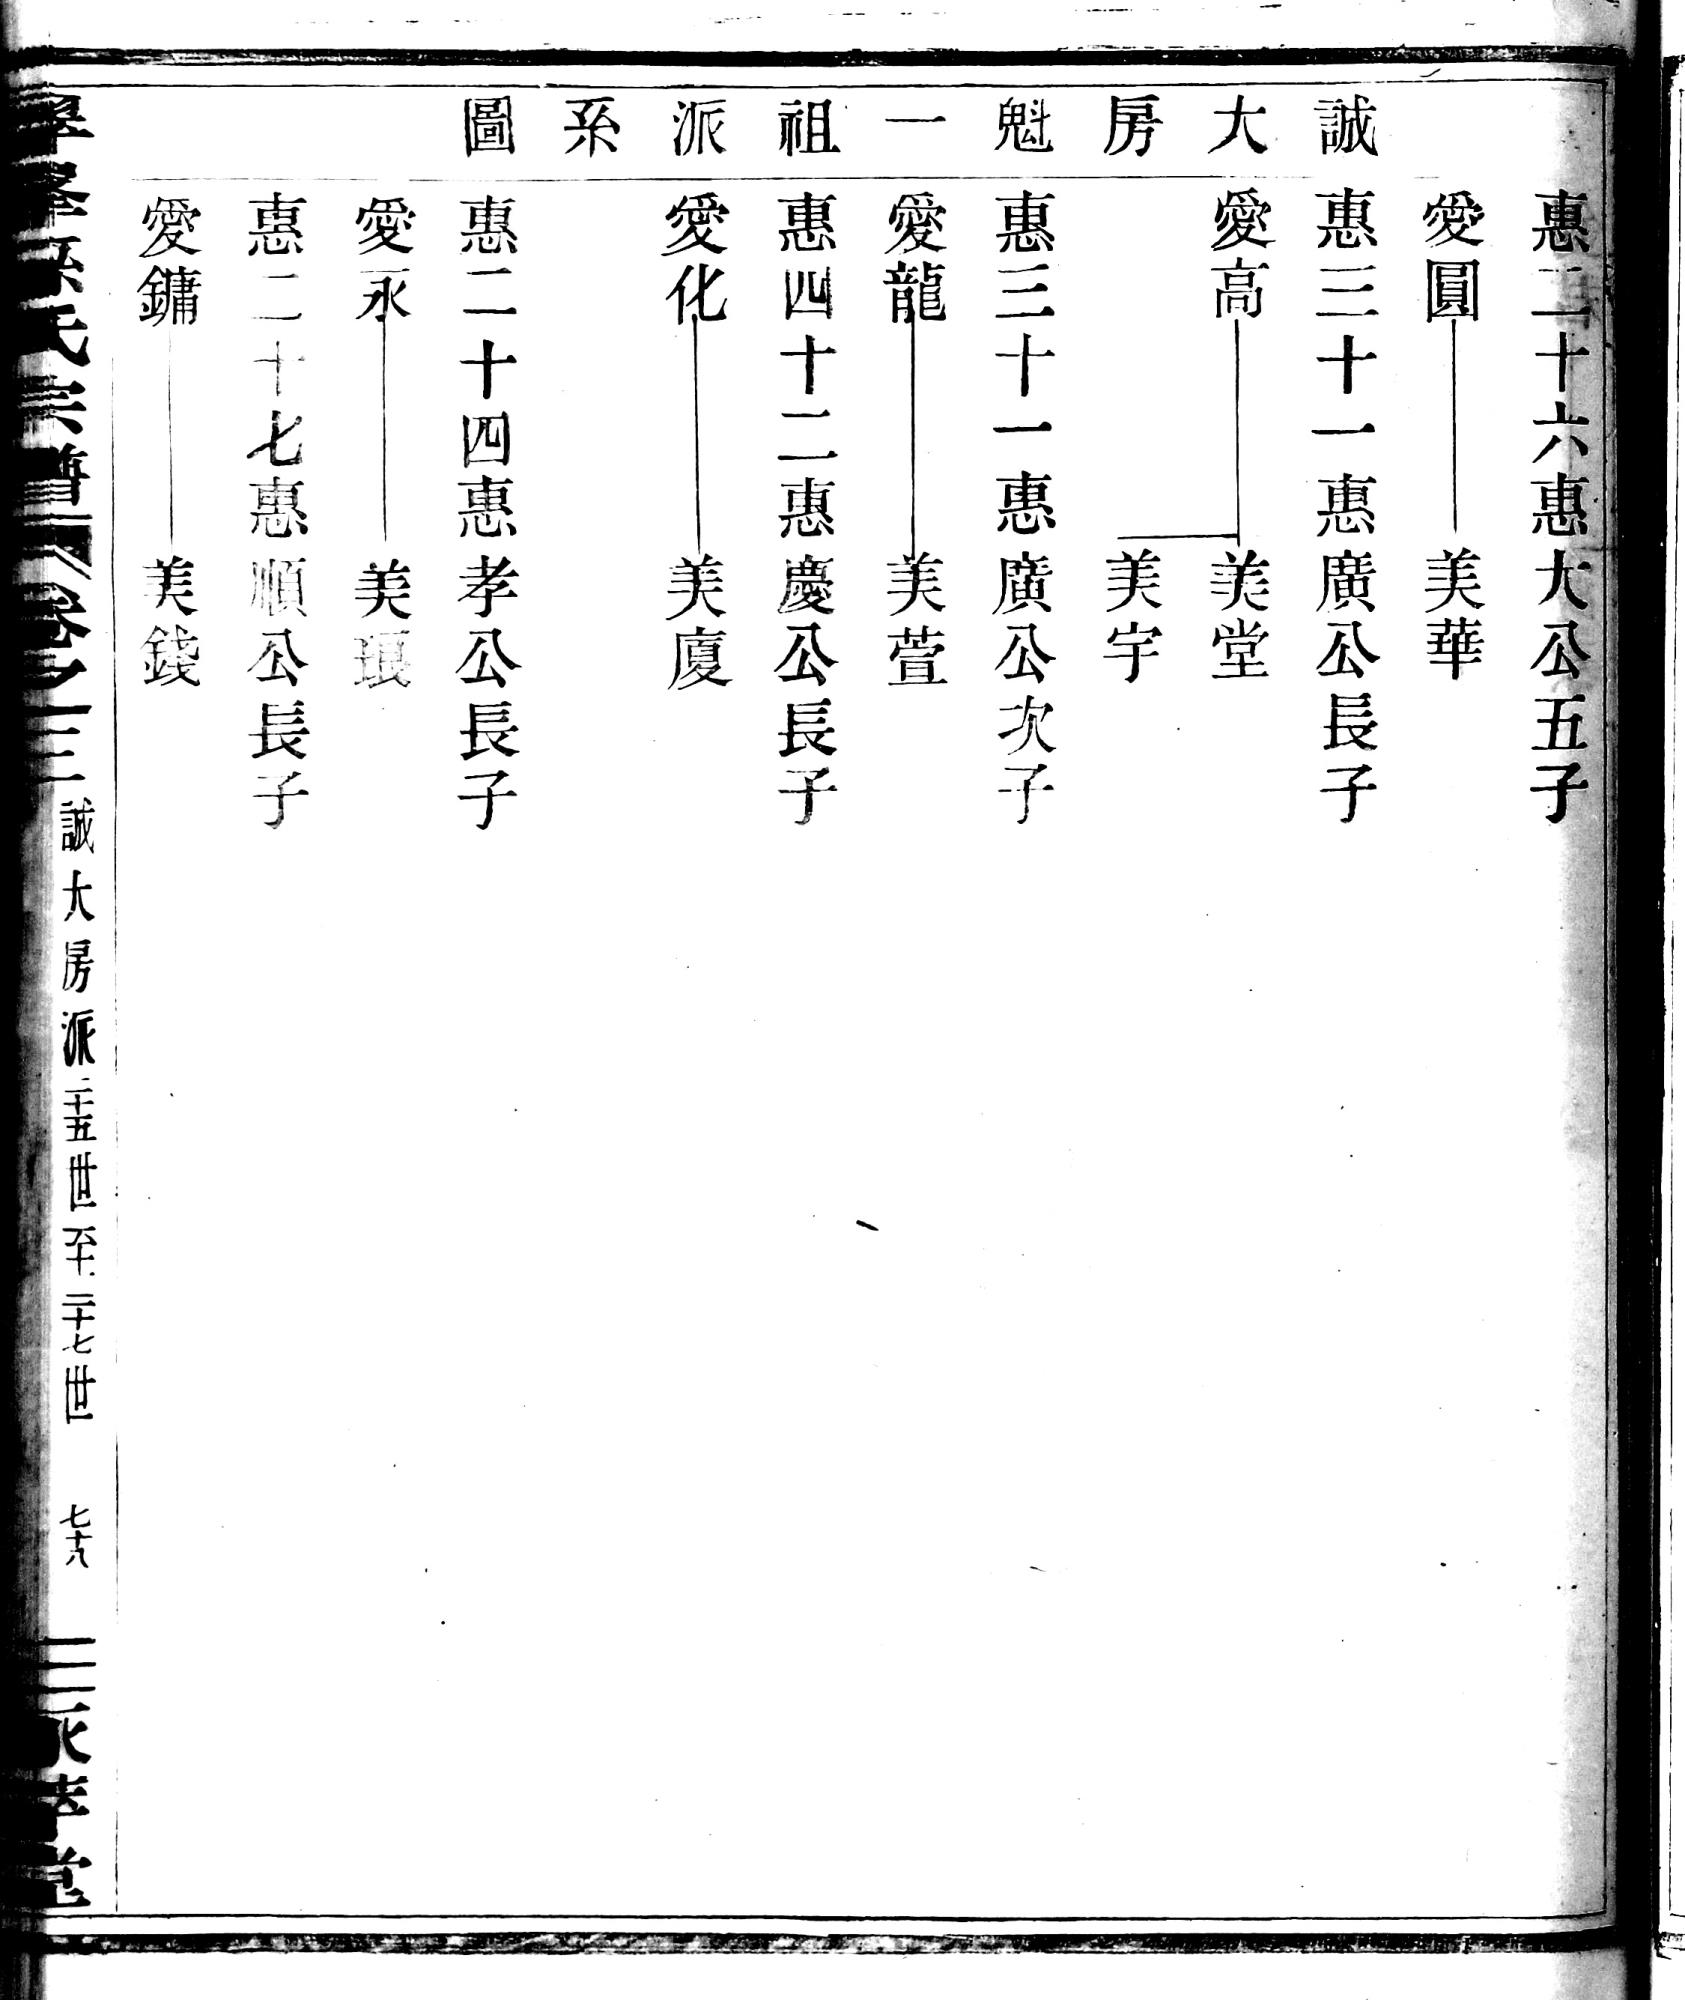 誠大房魁一祖派系圖
惠二十六惠大公五子
愛圓 美華
惠三十一惠廣公長子
愛高 美堂
美宇
惠三十一惠廣公次子
愛龍 美萱
惠四十二惠慶公長子
愛化 美廈
惠二十四惠孝公長子
愛永 美
惠二十七惠順公長子
愛鏞 美錢
孫氏宗譜 卷之三 誠大房派二十五世至二十七世 七十八 永孝堂